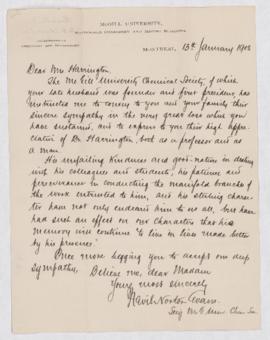 McGILL UNIVERSITY,
MONTREAL, 13th January 1908
Dear Mrs Harrington,
The McGill University Chemical Society, of which
your late husband was founder and first president, has
instructed me to convey to you and your family their
sincere sympathy in the very great loss which you
have sustained, and to express to you their high appre-
ciation of Dr. Harrington, both as a professor and as
a man.
His unfailing kindness and good-nature in dealing
with his colleagues and students, his patience and
perseverance in conducting the manifold branches of
the work entrusted to him, and his sterling charac-
ter have not only endeared him to us all, but have
had such an effect on our characters that his
memory will continue "to live in lives made better
by his presence."
Once more begging you to accept our deep
sympathy, Believe me, dear Madam
Yours most sincerely
Nevil Norton Evans
Secy McG Univ Chem Soc